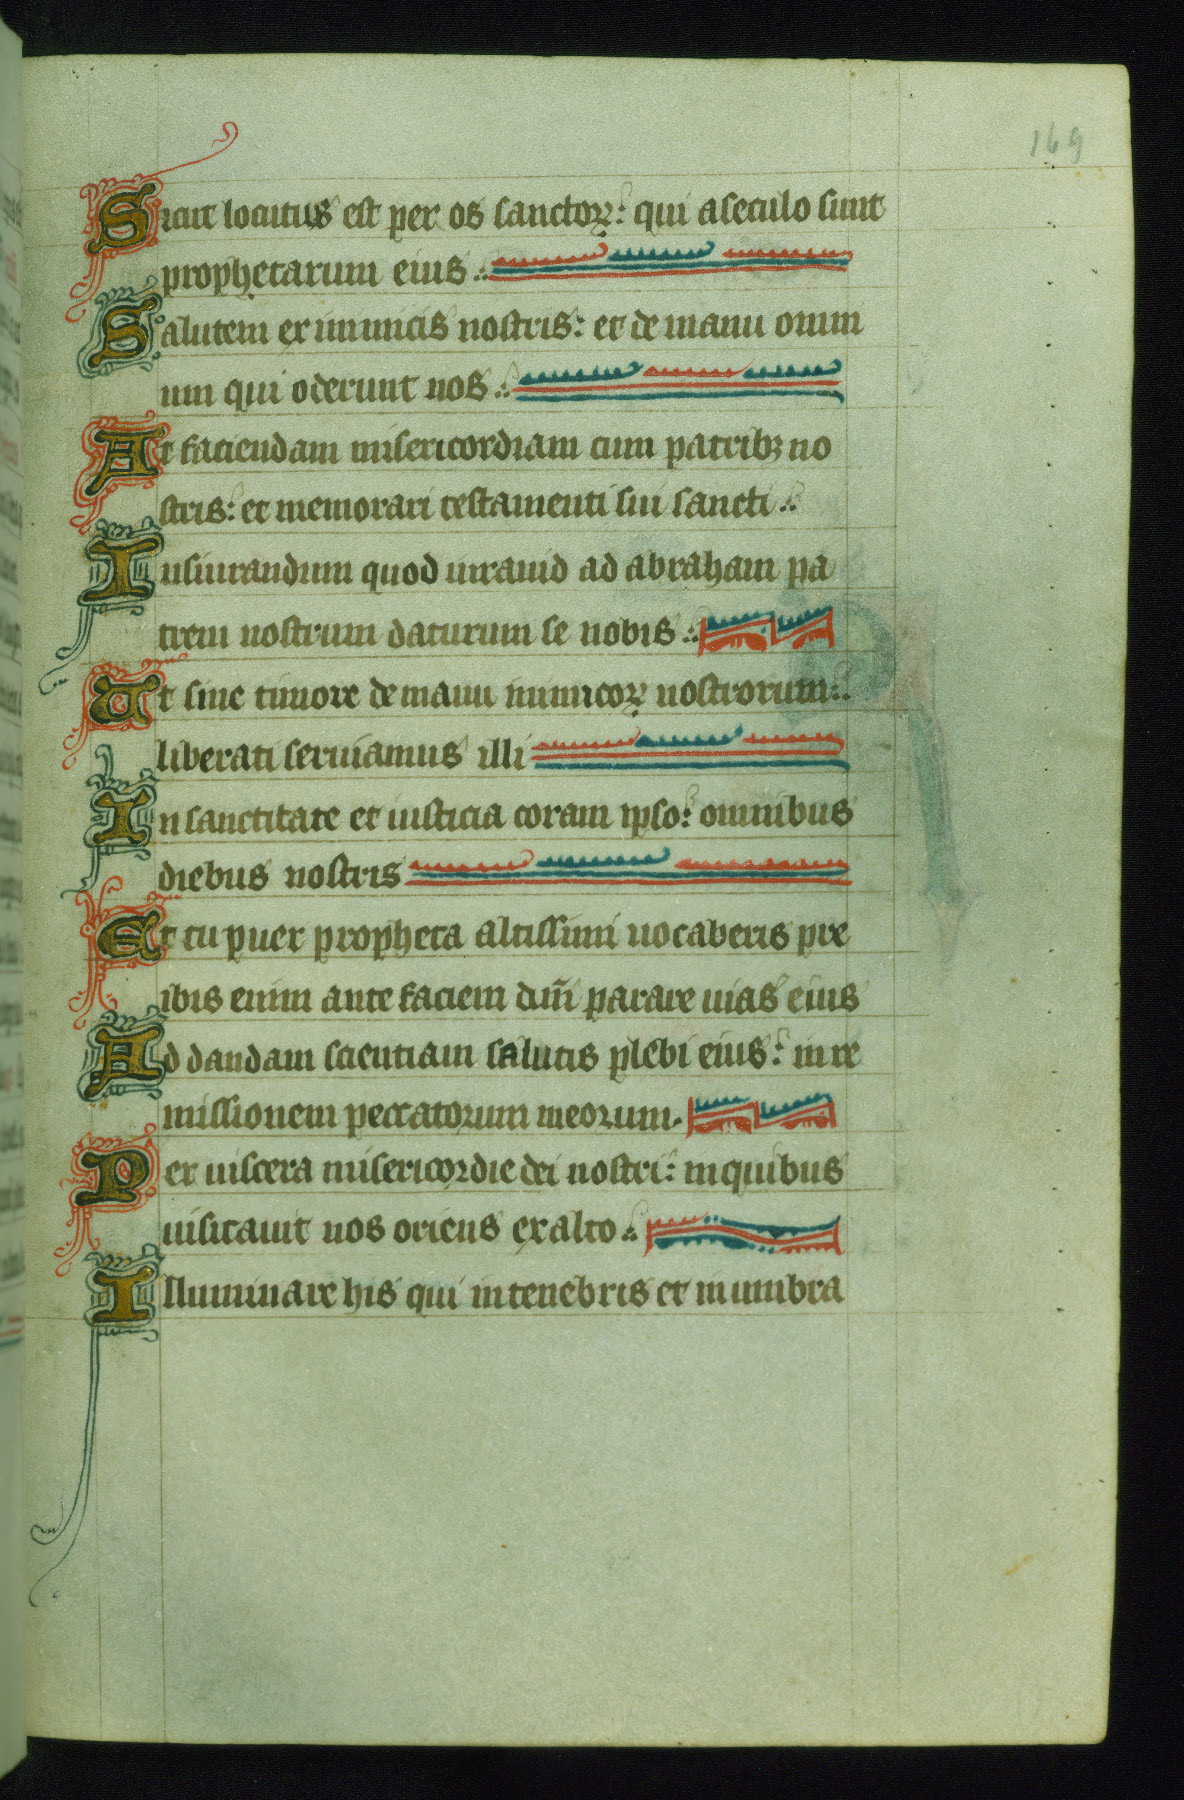 169
Sicut locutus est per os sanctoꝝ: qui aseculo sunt
prophetarum eius
Salutem ex inimicis nostris: et de manu omni
um qui oderunt nos
At faciendam misericordiam cum patribꝫ no
stris: et memorari testamenti sui sancti
Iusiurandum quod iurauid ad abraham pa
trem nostrum daturum se nobis
Ut sine timore de manu inimicoꝝ nostrorum:
liberati seruiamus illi
In sanctitate et iusticia coram ipso: omnibus
diebus nostris
Et tu puer propheta altissimi uocaberis pre
ibis enim ante faciem dñi parare uias eius
Ad dandam scientiam salutis plebi eius: in re
missionem peccatorum meorum.
Per uiscera misericordie dei nostri: inquibus
uisitauit nos oriens exalto
Illuminare his qui intenebris et in umbra